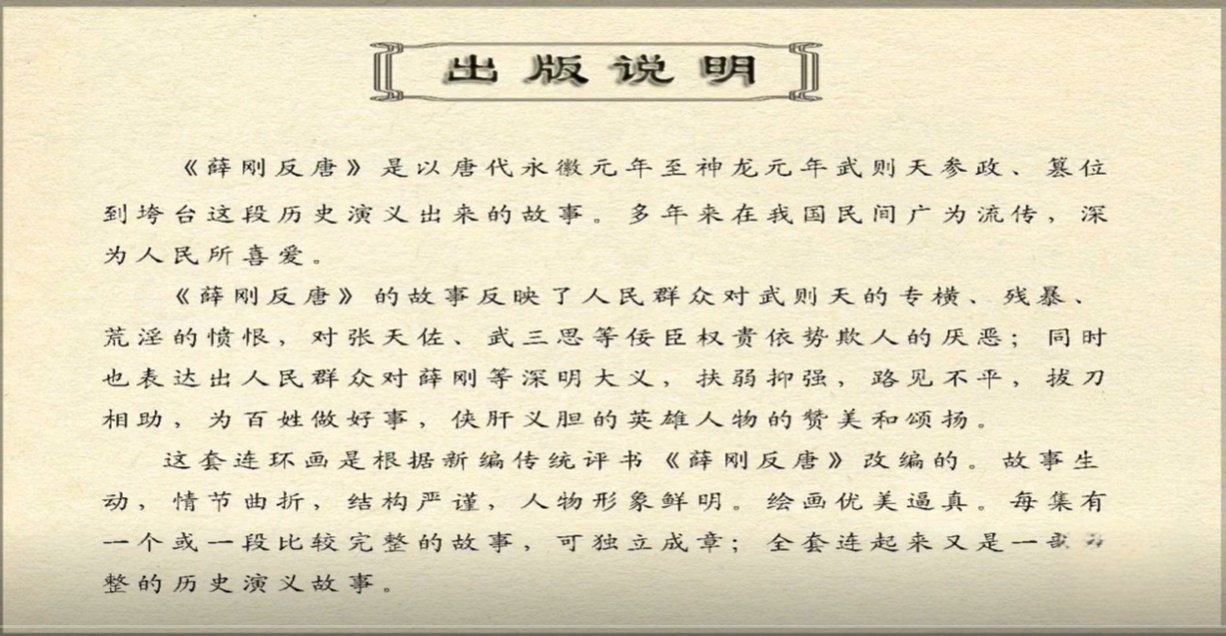 出版说明
《薛刚反唐》是以唐代永徽元年至神龙元年武则天参政、篡位
到垮台这段历史演义出来的故事。多年来在我国民间广为流传，深
为人民所喜爱。
《薛刚反唐》的故事反映了人民群众对武则天的专横、残暴、
荒淫的愤恨，对张天佐、武三思等佞臣权贵依势欺人的厌恶；同时
也表达出人民群众对薛刚等深明大义，扶弱抑强，路见不平，拔刀
相助，为百姓做好事，侠肝义胆的英雄人物的赞美和颂扬。
这套连环画是根据新编传统评书《薛刚反唐》改编的。故事生
动，情节曲折，结构严谨，人物形象鲜明。绘画优美逼真。每集有
一个或一段比较完整的故事，可独立成章；全套连起来又是一
整的历史演义故事。